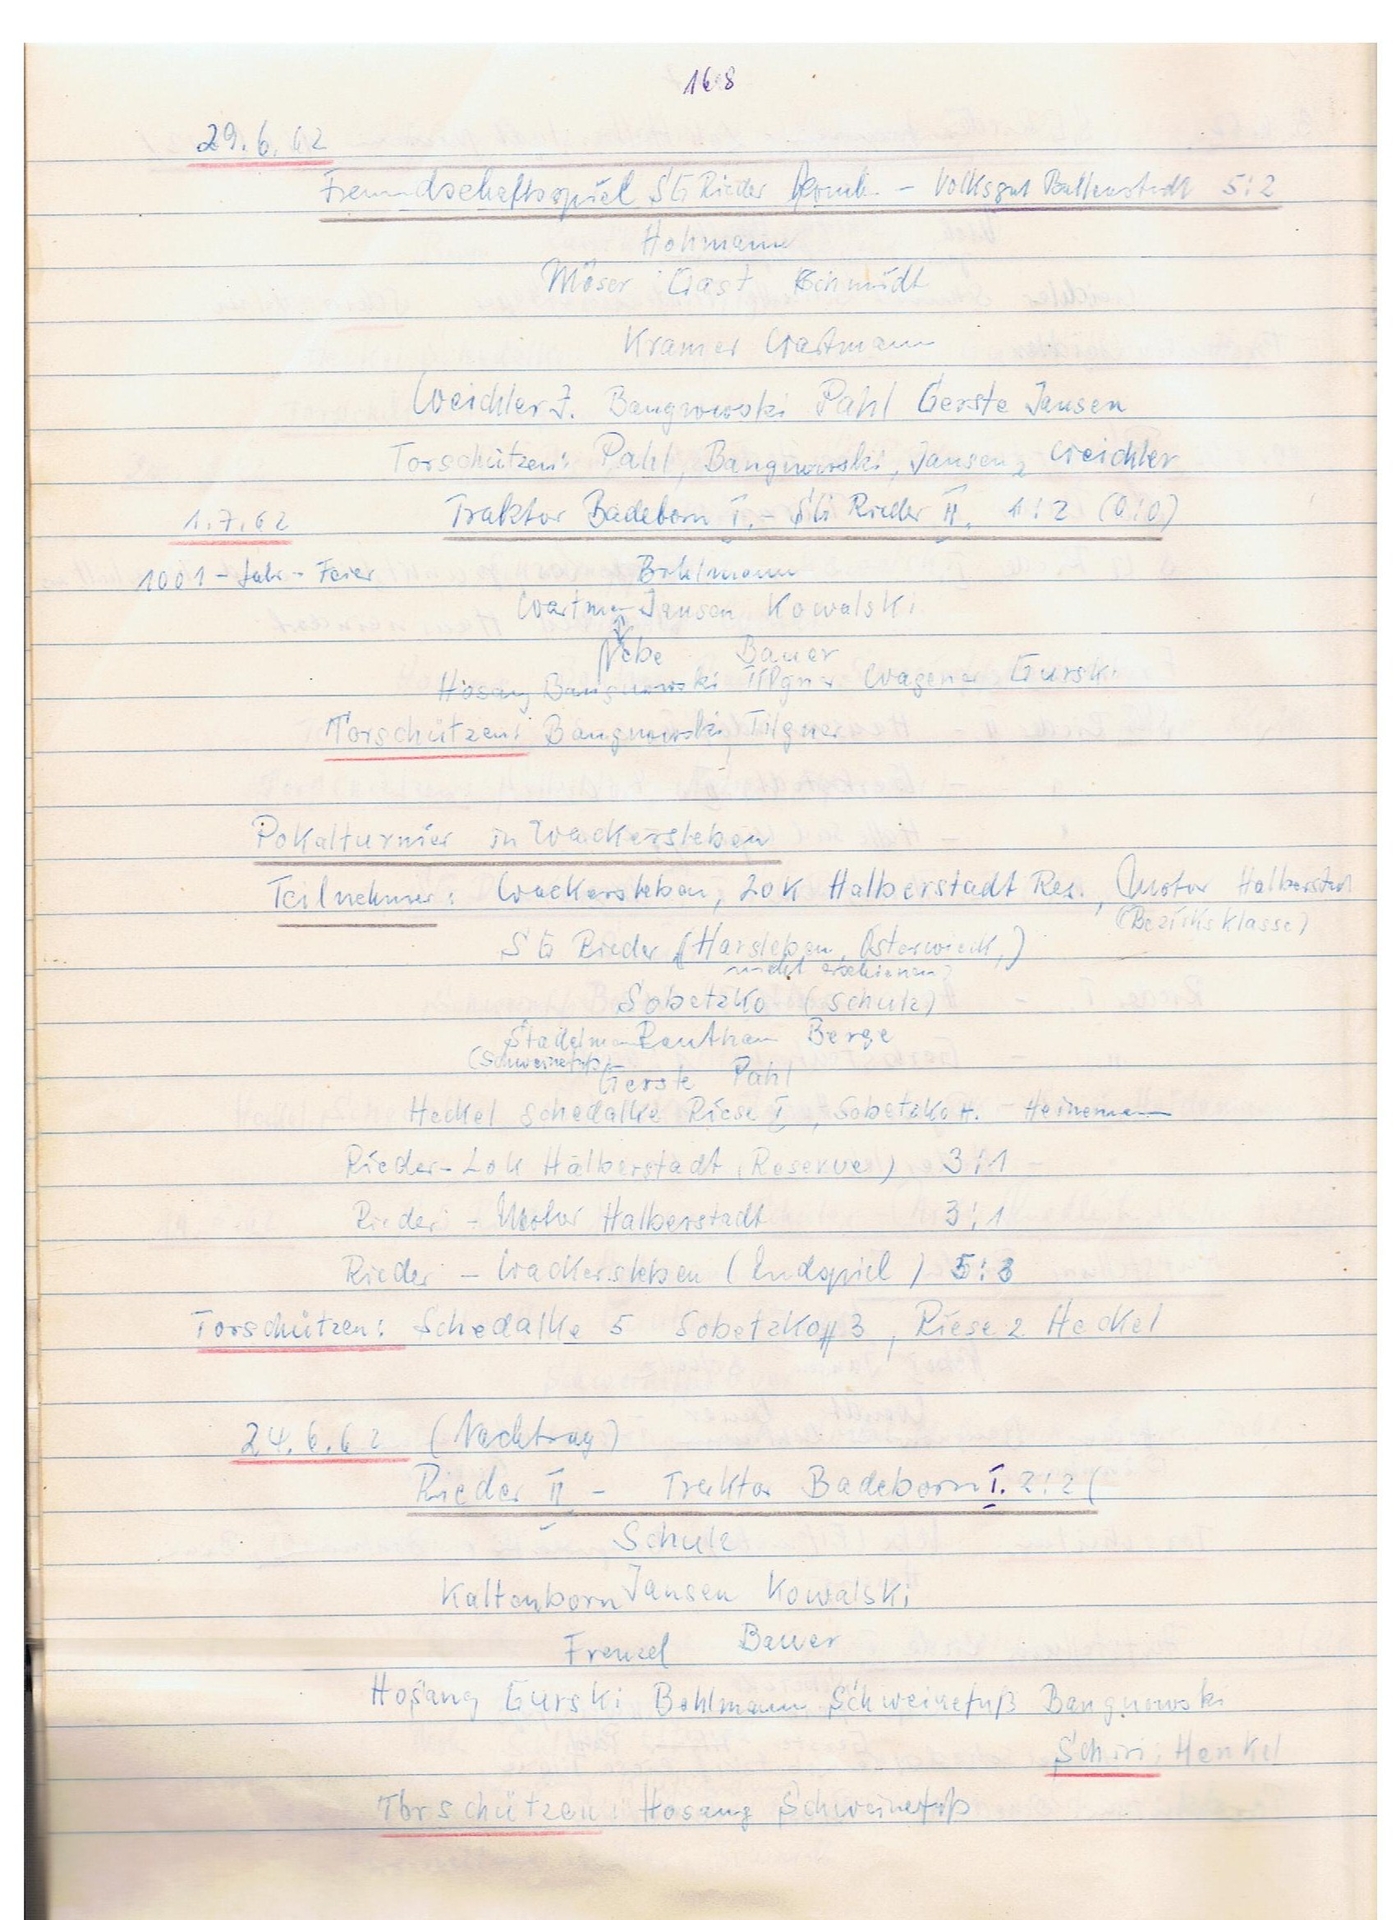 168
29.6.62
Freundschaftsspiel SG Rieder komb. - Volksgut Ballenstedt 5:2
Hohmann
Möser Gast Schmidt
Kramer Wartmann
Weichler J. Bangnowski Pahl Gerste Jansen
Torschützen: Pahl, Bangnowski, Jansen 2 Weichler
1.7.62 Traktor Badeborn I. - SG Rieder II. 1:2 (0:0)
1001-Jahr-Feier Bohlmann
Wartmann Jansen Kowalski
Nebe Bauer
Hosang Bangnowski Tilgner Wagener Gurski
Torschützen: Bangnowski, Tilgner
Pokalturnier in Wackersleben
Teilnehmer: Wackersleben, Lok Halberstadt Res., Motor Halberstadt
(Bezirksklasse)
SG Rieder (Harsleben, Osterwieck,)
nicht erschienen
Sobetzko (Schulz)
Stadelmann Bentham Berge
(Schweinefuß)
Gerste Pahl
Heckel Schedalke Riese I, Sobetzko H. Heinemann
Rieder - Lok Halberstadt (Reserve) 3:1
Rieder - Motor Halberstadt 3:1
Rieder - Wackersleben (Endspiel) 5:3
Torschützen: Schedalke 5 Sobetzko II 3, Riese 2 Heckel
24.6.62 (Nachtrag)
Rieder II - Traktor Badeborn I. 2:2 (
Schulz
Kaltenborn Jansen Kowalski
Frenzel Bauer
Hosang Gurski Bohlmann Schweinefuß Bangnowski
Schiri: Henkel
Torschützen: Hosang Schweinefuß